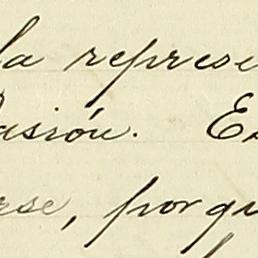 la represe
asión. E
rse, porqu